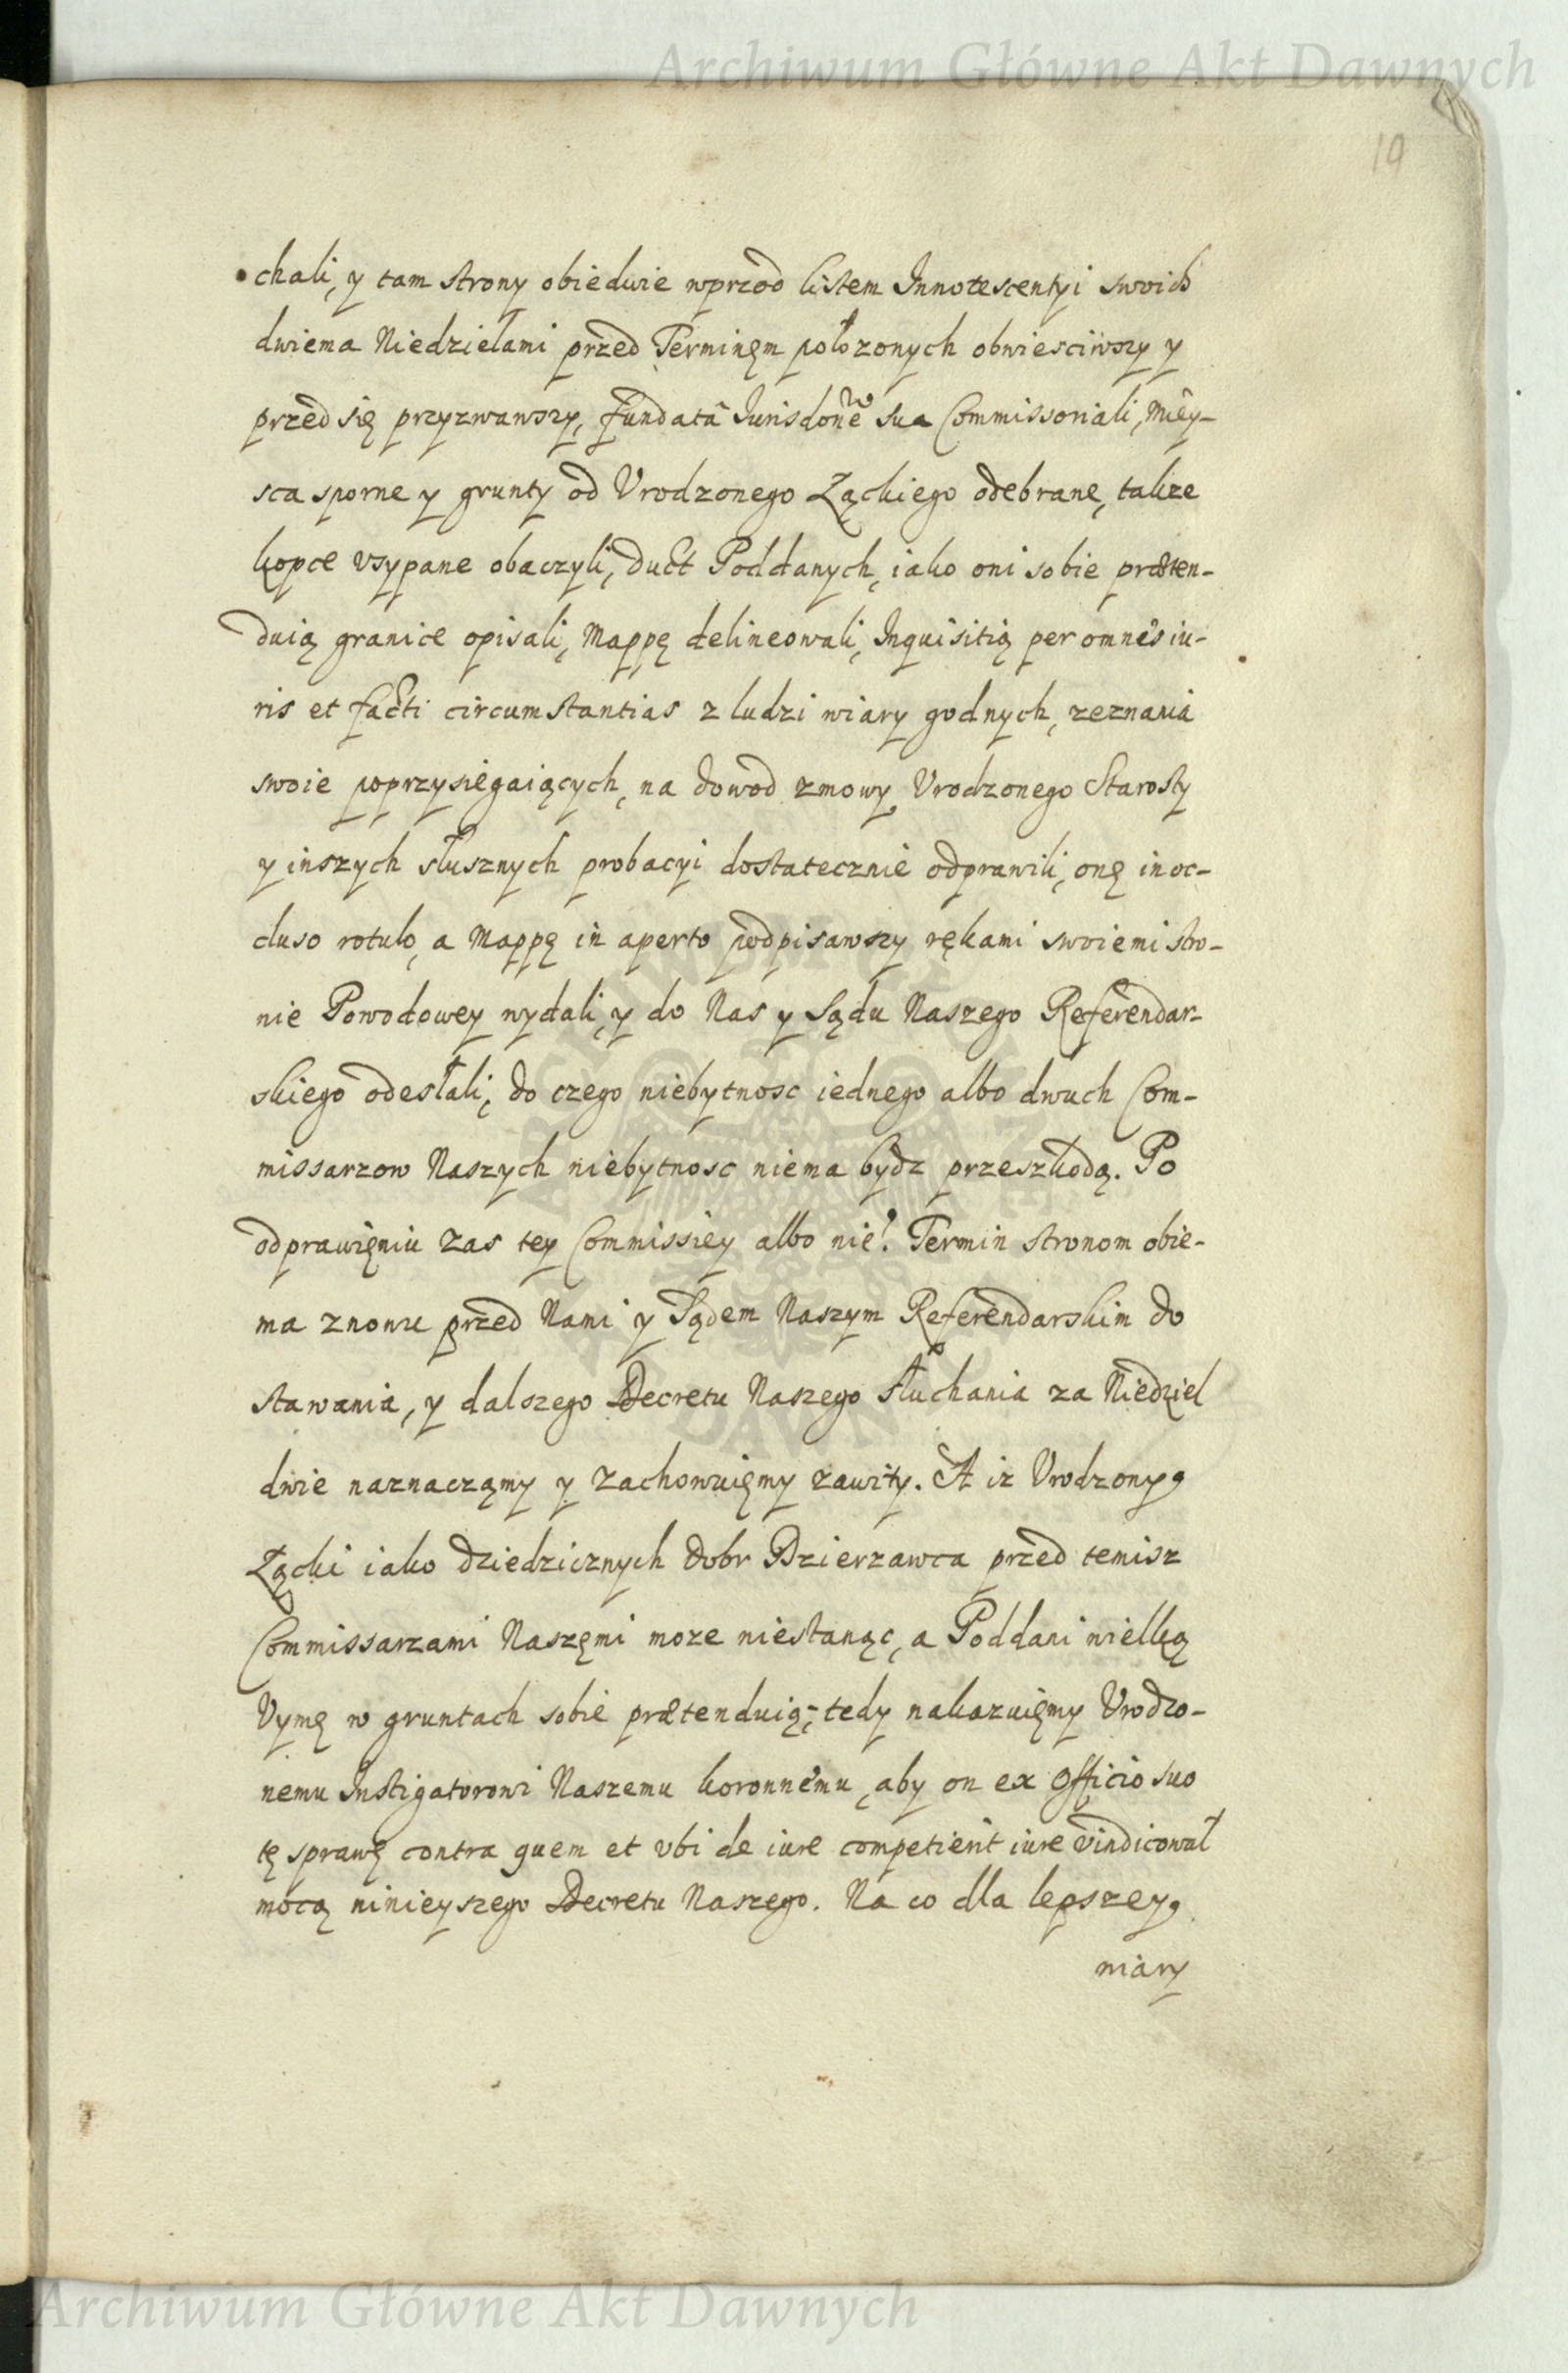 Archiwum Główne Akt Dawnych
19
chali, y tam strony obiedwie wprzod listem Innotescentyi swoich
dwiema Niedzielami przed Terminęm położonych obwiesciwszy y
przed się przyzwawszy, fundatâ Iurisdone sua Commissoriali, miey-
sca sporne y grunty od Vrodzonego Ląckiego odebrane, takze
kopce vsypane obaczyli, duct Poddanych, iako oni sobie præten-
duią granice opisali, Mappę delineowali, Inquisitią per omnes iu-
ris et facti circumstantias z ludzi wiary godnych, zeznania
swoie poprzysięgaiących, na dowod zmowy Vrodzonego Starosty
y inszych słusznych probacyi dostatecznie odprawili, onę in oc-
cluso rotulo, a Mappę in aperto podpisawszy rękami swoiemi stro-
nie Powodowey wydali, y do Nas y Sądu Naszego Referendar-
skiego odesłali, do czego niebytnosc iednego albo dwuch Com-
missarzow Naszych niebytnosc niema bydz przeszkodą. Po
odprawięniu zas tey Commissiey albo nie! Termin stronom obie-
ma znowu przed Nami y Sądem Naszym Referendarskim do
stawania, y dalszego Decretu Naszego słuchania za Niedziel
dwie naznacząmy y zachowuięmy zawity. A iz Vrodzony
Łącki iako dziedzicznych dobr Dzierzawca przed temisz
Commissarzami Naszęmi moze niestanąc, a Poddani wielką
Vymę w gruntach sobie prætenduią, tedy nakazuięmy Vrodzo-
nemu Instigatorowi Naszemu koronnemu, aby on ex Officio suo
tę sprawę contra quem et vbi de iure competierit iure vindicował
mocą ninieyszego Decretu Naszego. Na co dla lepszey
wiary
Archiwum Główne Akt Dawnych